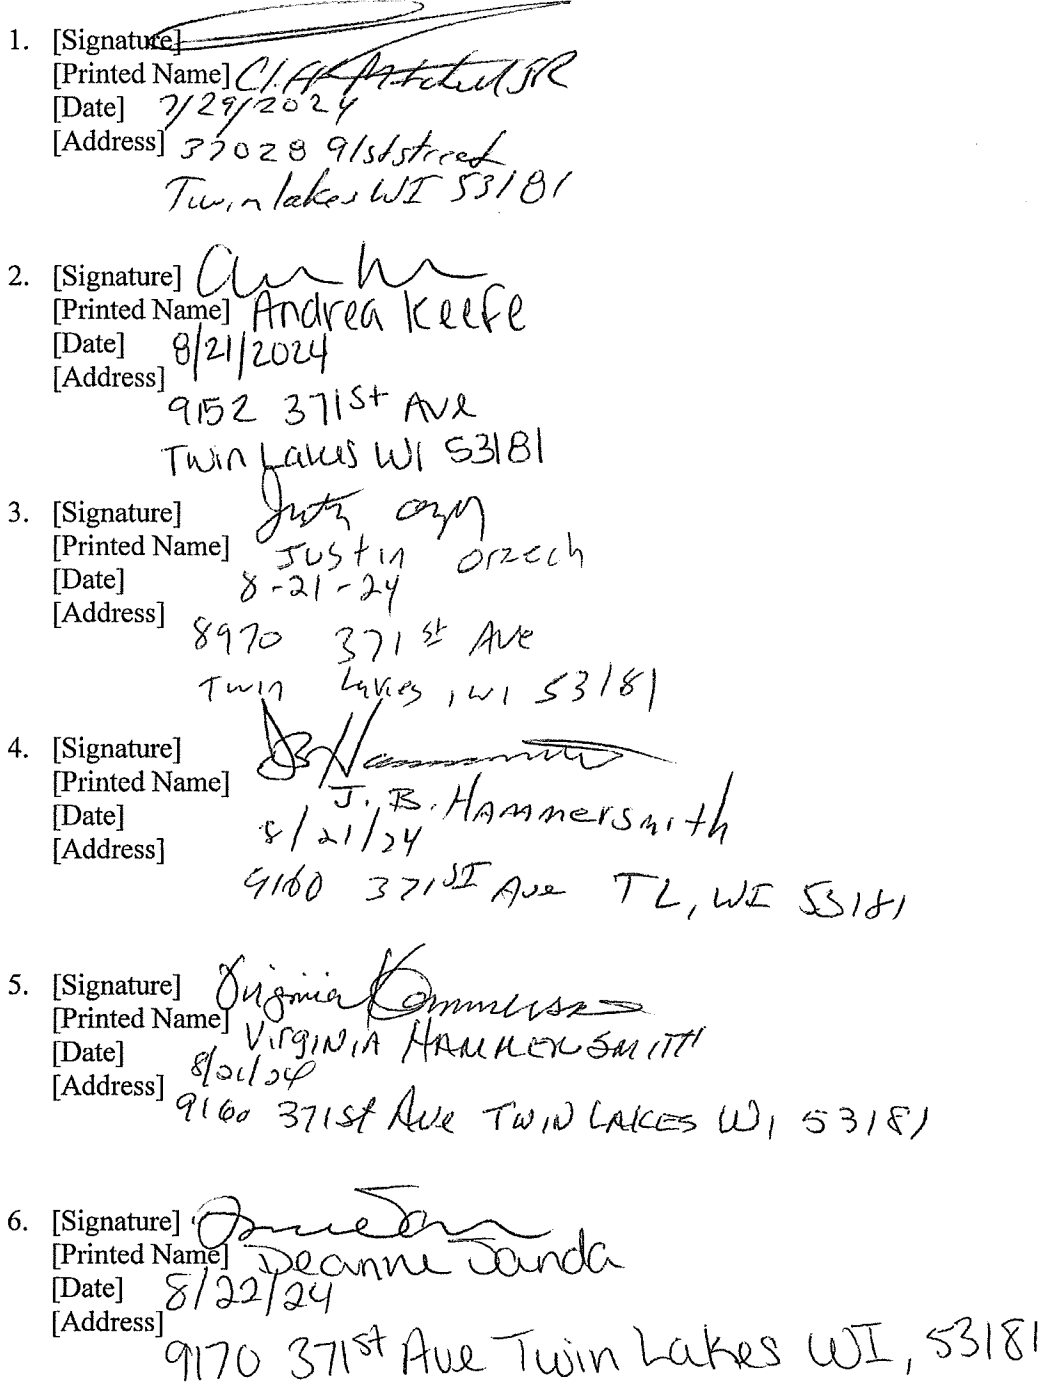 1. [Signature]
[Printed Name] Cliff Mitchell JR
[Date] 7/29/2024
[Address] 37028 91st street
Twin lakes WI 53181
2. [Signature]
[Printed Name] Andrea Keefe
[Date] 8/21/2024
[Address]
9152 371st Ave
Twin Lakes WI 53181
3. [Signature]
[Printed Name] Justin Orzech
[Date] 8-21-24
[Address]
8970 371st Ave
Twin Lakes, WI 53181
4. [Signature]
[Printed Name] J. B. Hammersmith
[Date] 8/21/24
[Address]
9160 371ST Ave TL, WI 53181
5. [Signature] Virginia
[Printed Name] VIRGINIA HAMMERSMITH
[Date] 8/21/24
[Address] 9160 371st Ave TWIN LAKES WI 53181
6. [Signature]
[Printed Name] Deanne Janda
[Date] 8/22/24
[Address]
9170 371st Ave Twin Lakes WI, 53181